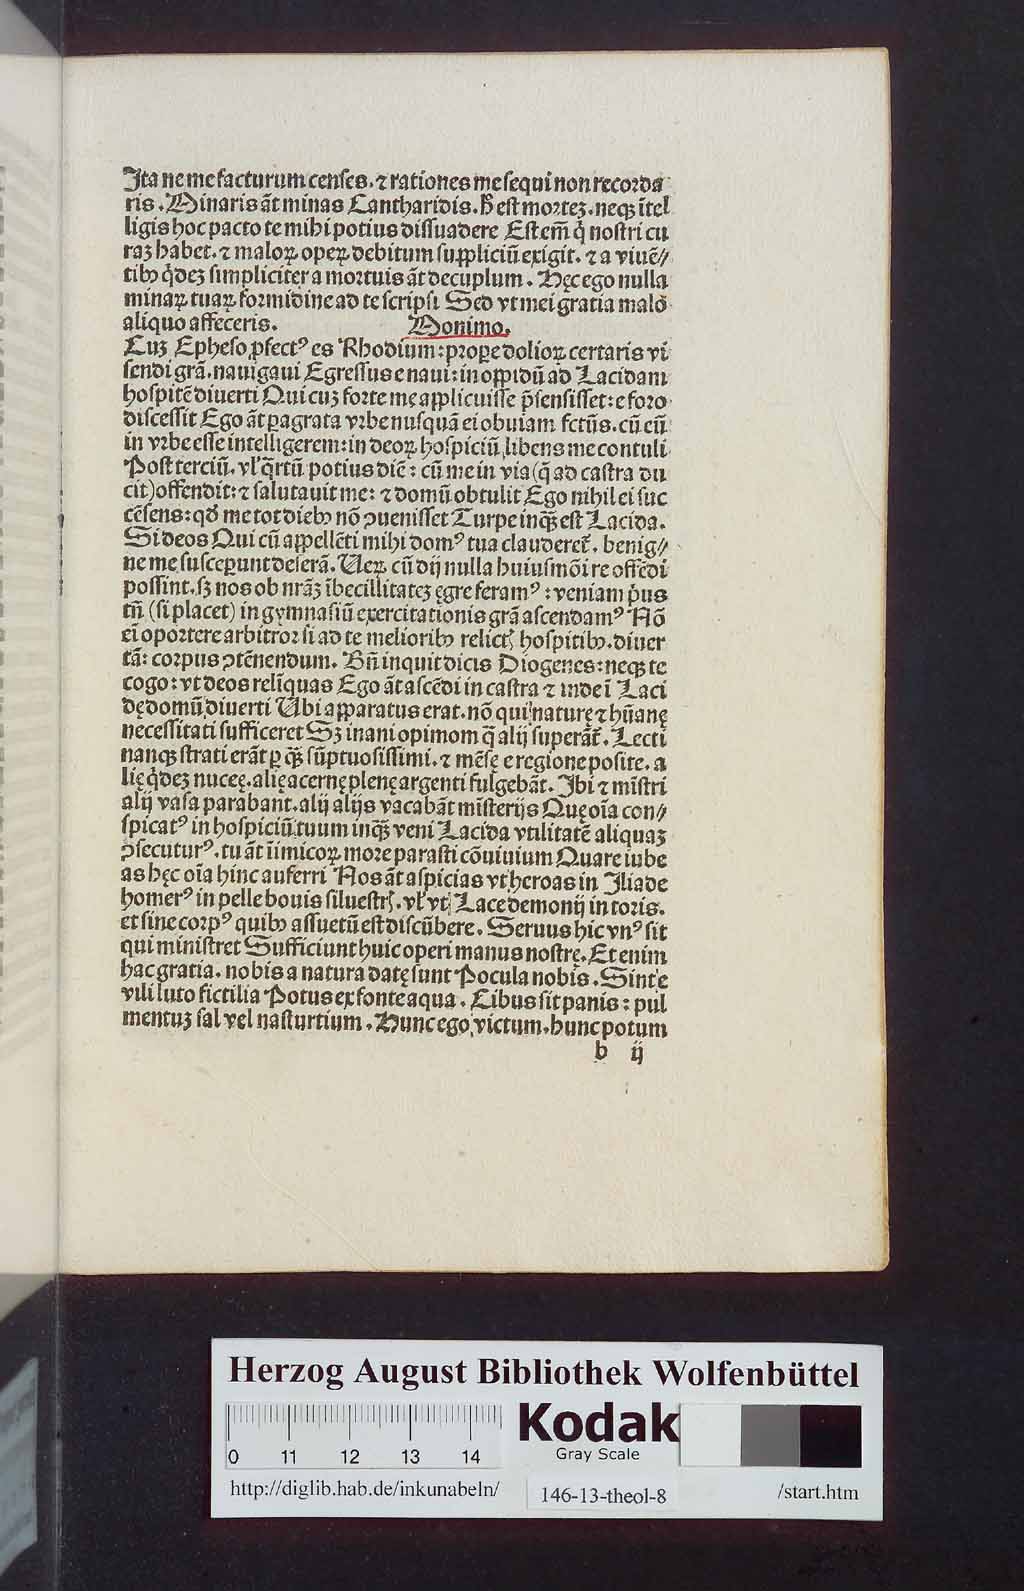 Ita ne me facturum censes. ⁊ rationes me sequi non recorda
ris. Minaris āt minas Cantharidis. ħ est mortez. neqꝫ ītel
ligis hoc pacto te mihi potius dissuadere Est em̄ q̇ nostri cu
raꝫ habet. ⁊ maloꝝ opeꝝ debitum suppliciū exigit. ⁊ a viuē//
tibꝰ q̇dez simpliciter a mortuis āt decuplum. Hęc ego nulla
minaꝝ tuaꝝ formidine ad te scripsi Sed vt mei gratia malo
aliquo affeceris. Monimo.
Cuꝫ Epheso ꝓfectꝰ es Rhodium: prope dolioꝝ certaris vi
sendi grā. nauigaui Egressus e naui: in oppidū ad Lacidam
hospitē diuerti Qui cuꝫ forte me applicuisse p̄sensisset: e foro
discessit Ego āt ꝑagrata vrbe nusquā ei obuiam fctūs. cū eū
in vrbe esse intelligerem: in deoꝝ hospiciū libens me contuli
Post terciū. vl̓ q̄rtū potius diē: cū me in via (q̄ ad castra du
cit) offendit: ⁊ salutauit me: ⁊ domū obtulit Ego nihil ei suc
cēsens: qd̓ me tot diebꝰ nō ꝯuenisset Turpe inqꝫ est Lacida.
Si deos Qui cū appellēti mihi domꝰ tua clauderet̄. benig//
ne me susceperunt deserā. Ueꝝ cū dij nulla huiusmōi re offēdi
possint. sꝫ nos ob nrāꝫ ībecillitatez ęgre feramꝰ: veniam p̓us
tn̄ (si placet) in gymnasiū exercitationis grā ascendamꝰ Nō
ei̅ oportere arbitror si ad te melioribꝰ relictꝭ hospitibꝰ. diuer
tā: corpus ꝯtēnendum. Bn̄ inquit dicis Diogenes: neqꝫ te
cogo: vt deos relīquas Ego āt ascēdi in castra ⁊ inde ī Laci
dę domū diuerti Ubi apparatus erat. nō qui naturę ⁊ hūanę
necessitati sufficeret Sꝫ inani opimom q̄ alij superāt̄. Lecti
nanqꝫ strati erāt ꝑ qꝫ sūptuosissimi. ⁊ mēsę e regione posite. a
lię q̇dez nuceę. alię acernę plenę argenti fulgebāt. Ibi ⁊ mīstri
alij vasa parabant. alij alijs vacabāt mīsterijs Quę oīa con//
spicatꝰ in hospiciū tuum inqꝫ veni Lacida vtilitatē aliquaꝫ
ꝯsecuturꝰ. tu āt īimicoꝝ more parasti cōuiuium Quare iube
as hęc oīa hinc auferri Nos āt aspicias vt heroas in Iliade
homerꝰ in pelle bouis siluestrꝭ. vl̓ vt Lacedemonij in toris.
et sine corpꝰ quibꝰ assuetū est discūbere. Seruus hic vnꝰ sit
qui ministret Sufficiunt huic operi manus nostrę. Etenim
hac gratia. nobis a natura datę sunt Pocula nobis. Sint e
vili luto fictilia Potus ex fonte aqua. Cibus sit panis: pul
mentuꝫ sal vel nasturtium. Hunc ego victum. hunc potum
b ij
Herzog August Bibliothek Wolfenbüttel
0 11 12 13 14
Kodak
Gray Scale
http://diglib.hab.de/inkunabeln/ 146-13-theol-8 /start.htm